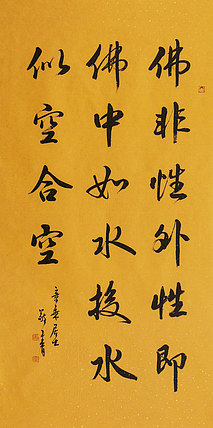 佛非性外性即
佛中如水投水
似空合空